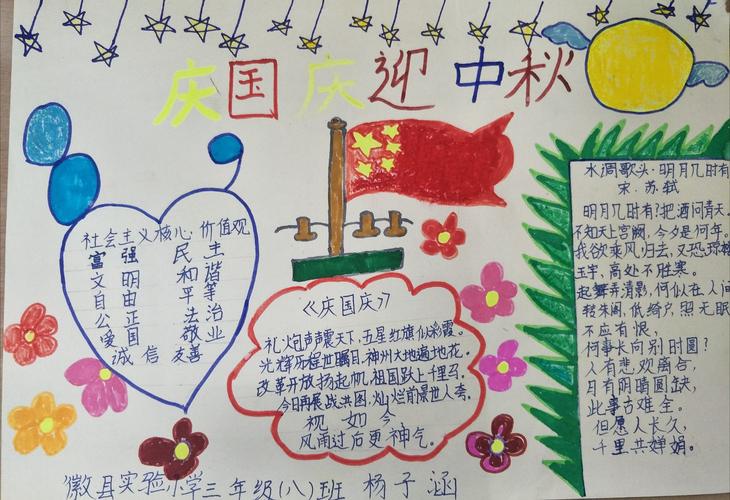 庆国庆迎中秋
社会主义核心价值观
富强 民主
文明 和谐
自由 平等
公正 法治
爱国 敬业
诚信 友善
《庆国庆》
礼炮声声震天下,五星红旗似彩霞。
光辉历程世瞩目,神州大地遍地花。
改革开放扬起帆,祖国跃上千里马。
今日再展战共图,灿烂前景世人夸。
视如今
风雨过后更神气。
水调歌头·明月几时有
宋.苏轼
明月几时有?把酒问青天。
不知天上宫阙,今夕是何年。
我欲乘风归去,又恐琼楼
玉宇,高处不胜寒。
起舞弄清影,何似在人间
转朱阁,低绮户,照无眠
不应有恨,
何事长向别时圆?
人有悲欢离合,
月有阴晴圆缺,
此事古难全。
但愿人长久,
千里共婵娟。
徽县实验小学三年级(八)班 杨子涵